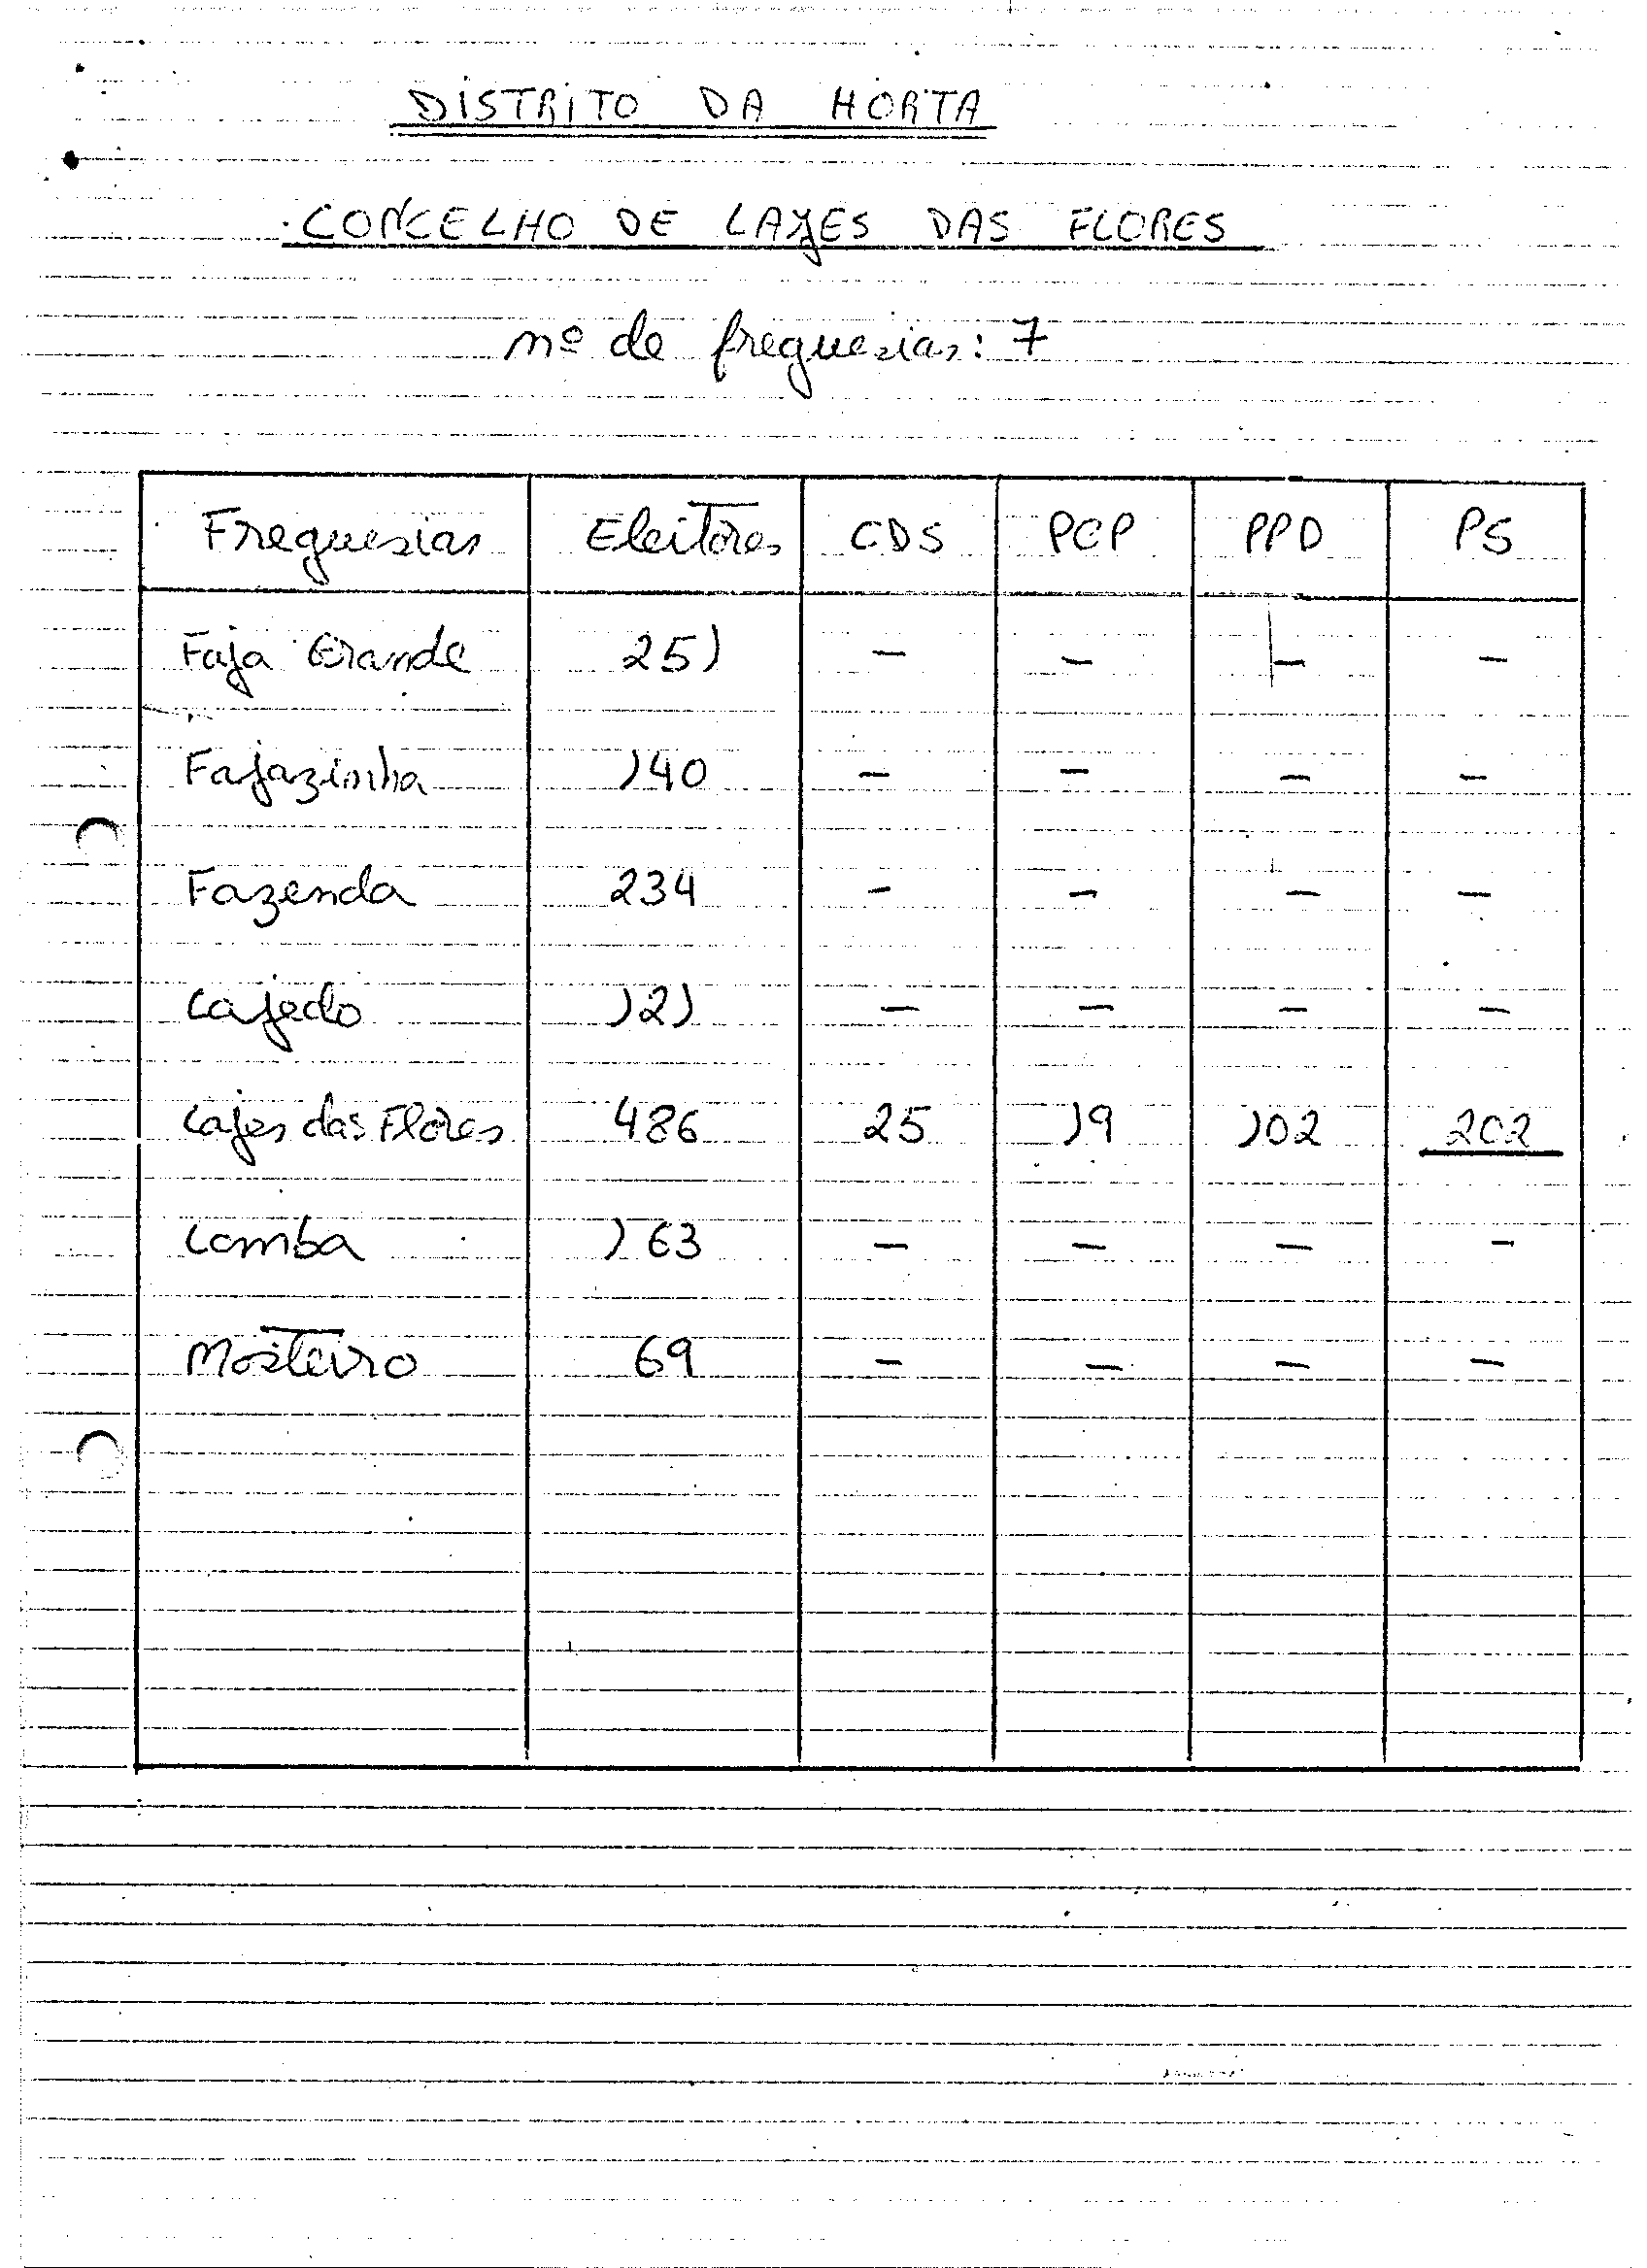 DISTRITO DA HORTA
CONCELHO DE LAJES DAS FLORES
nº de freguesias: 7
Freguesias Eleitores CDS PCP PPD PS
Faja Grande 251 — — — —
Fajazinha 140 — — — —
Fazenda 234 — — — —
Lajedo 121 — — — —
Lajes das Flores 486 25 19 102 202
Lomba 163 — — — —
Mosteiro 69 — — — —